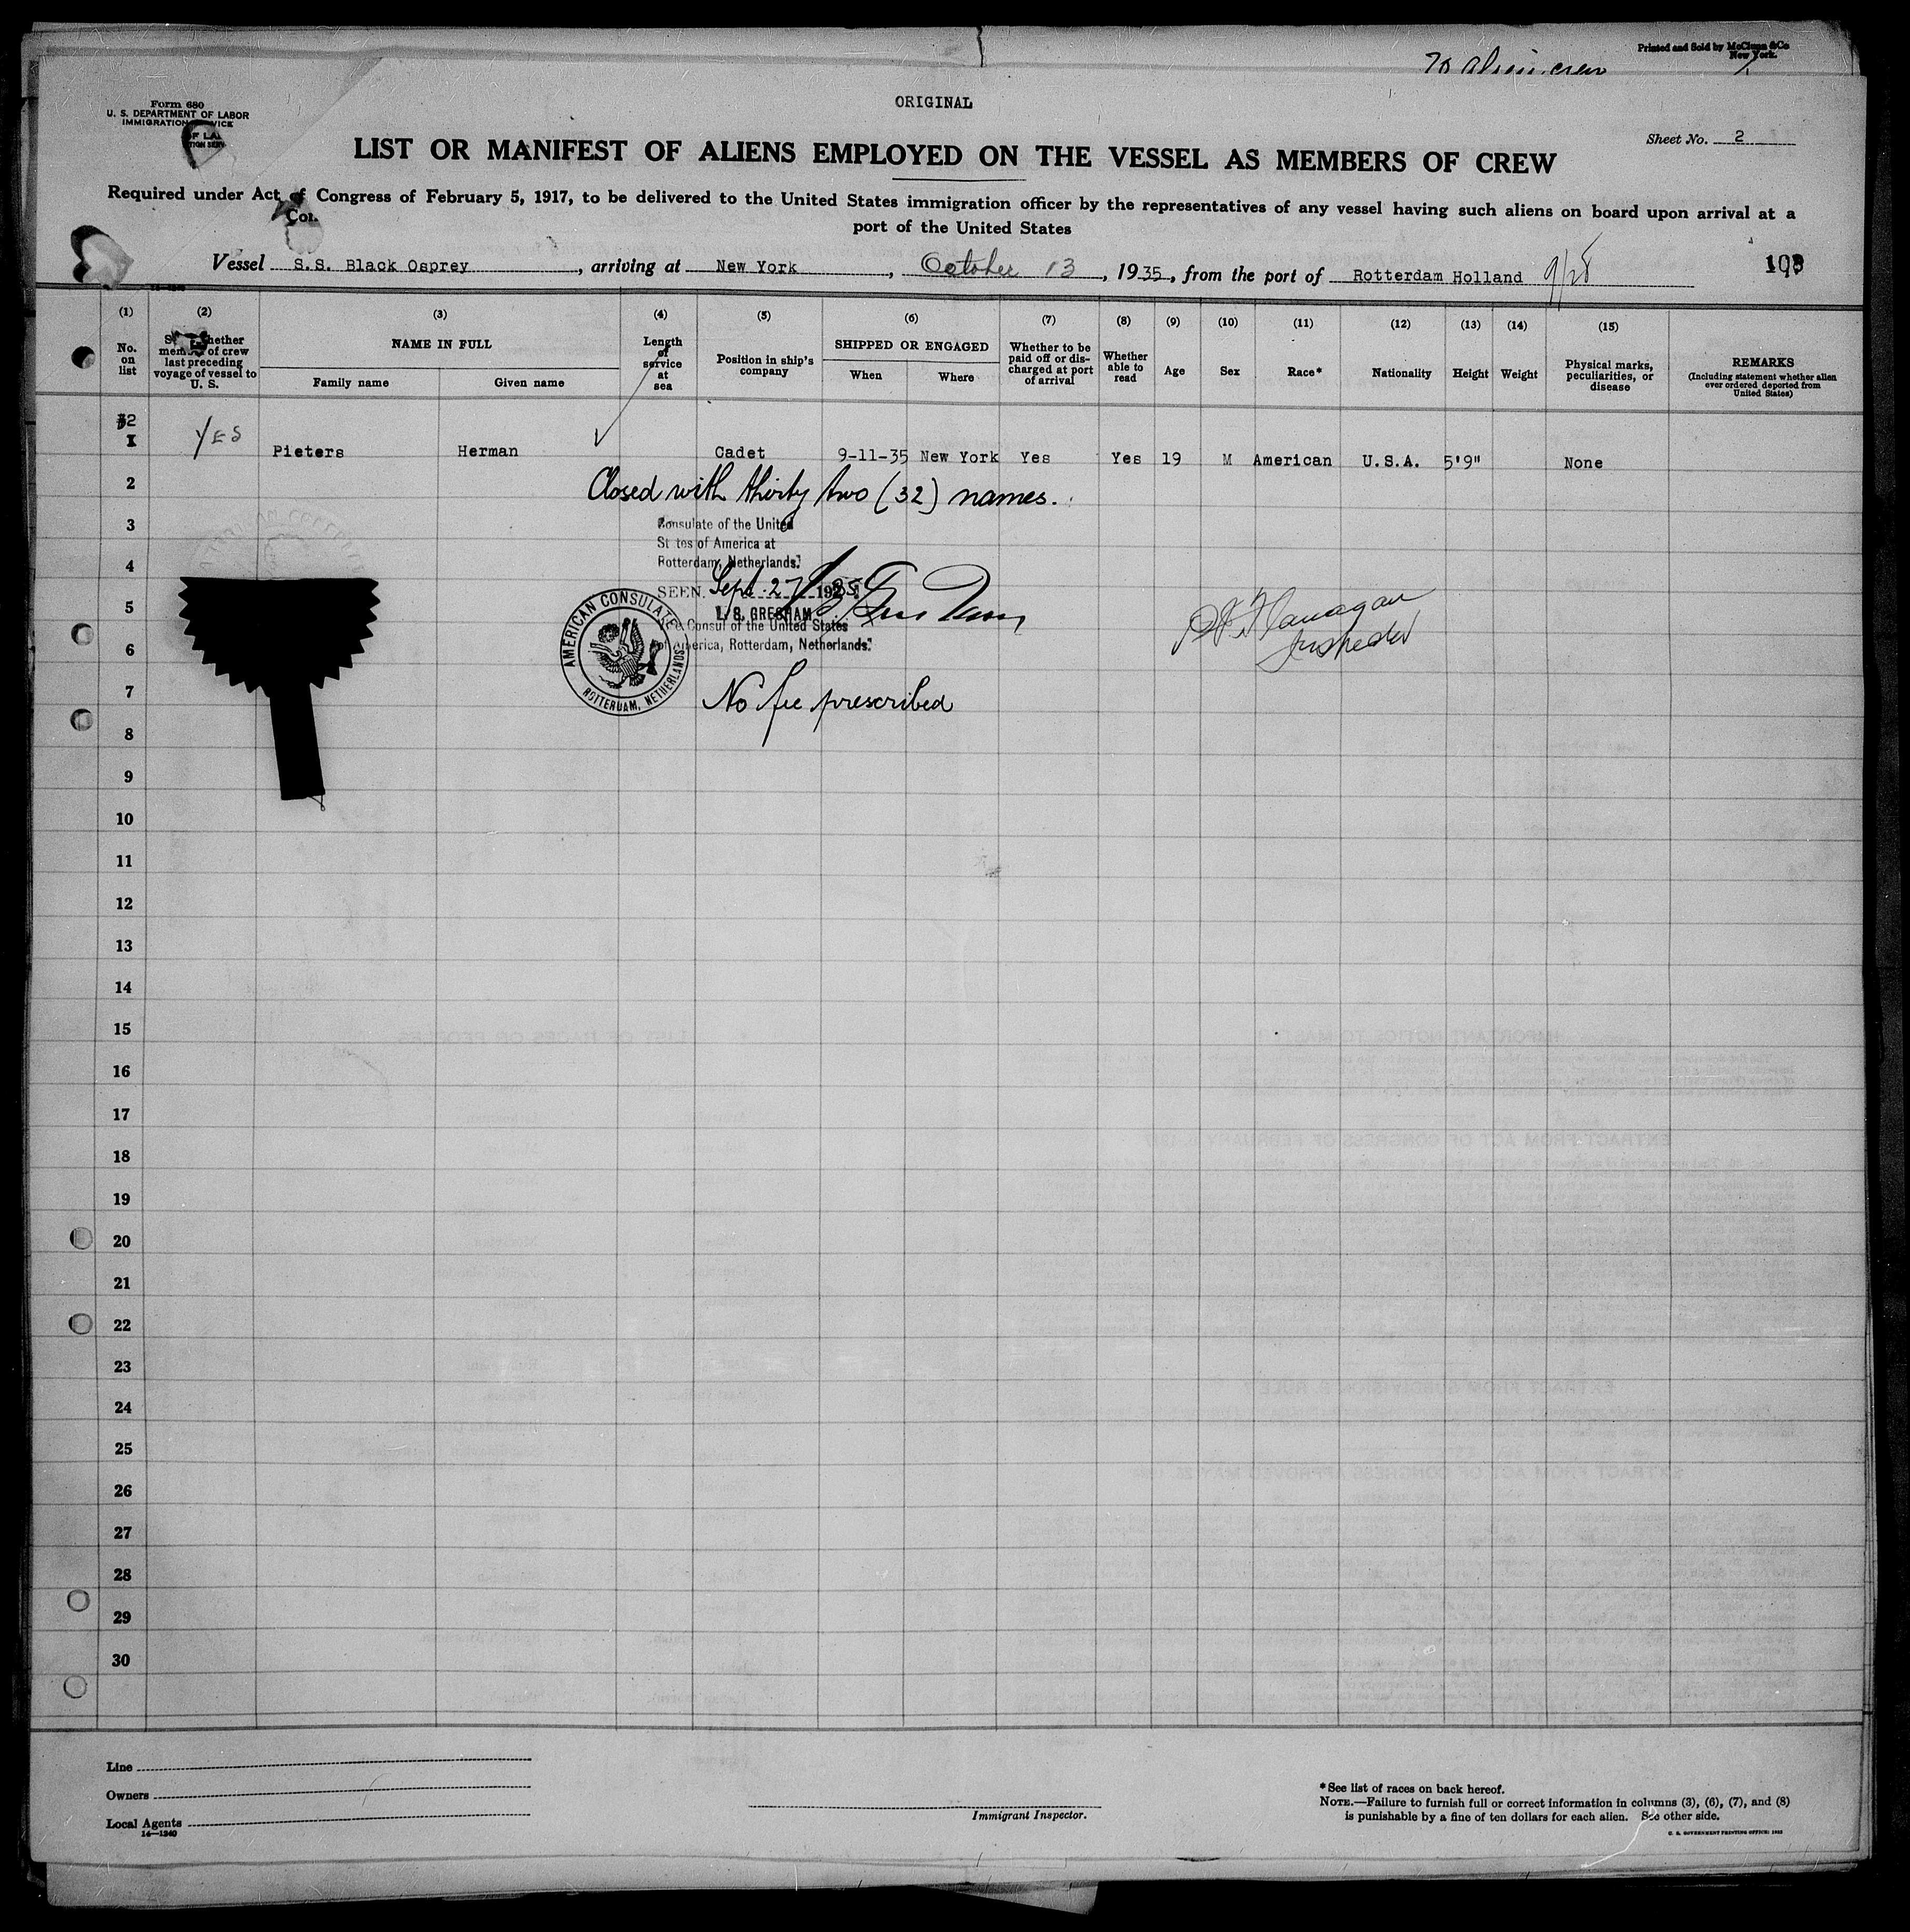 Printed and Sold by McClunn & Co
New York.
Form 680
U. S. DEPARTMENT OF LABOR
IMMIGRATION
ORIGINAL
Sheet No. 2
LIST OR MANIFEST OF ALIENS EMPLOYED ON THE VESSEL AS MEMBERS OF CREW
Required under Act of Congress of February 5, 1917, to be delivered to the United States immigration officer by the representatives of any vessel having such aliens on board upon arrival at a
port of the United States
Vessel S.S. Black Osprey, arriving at New York, October 13, 1935, from the port of Rotterdam Holland 9/28
(1) (2) (3) (4) (5) (6) (7) (8) (9) (10) (11) (12) (13) (14) (15)
No. on list
member of crew last preceding voyage of vessel to U. S.
NAME IN FULL
Family name Given name
Length of service at sea
Position in ship's company
SHIPPED OR ENGAGED
When Where
Whether to be paid off or discharged at port of arrival
Whether able to read
Age
Sex
Race*
Nationality
Height
Weight
Physical marks, peculiarities, or disease
REMARKS
(Including statement whether alien ever ordered deported from United States)
32
1 Yes Pieters Herman Cadet 9-11-35 New York Yes Yes 19 M American U.S.A. 5'9" None
2 Closed with thirty two (32) names.
3
Consulate of the United
States of America at
4
Rotterdam, Netherlands.
SEEN Sept. 27 1935
5
L. S. GRESHAM
Vice Consul of the United States
6
of America, Rotterdam, Netherlands.
AMERICAN CONSULATE
ROTTERDAM, NETHERLANDS
Flanagan
Inspector
7 No fee prescribed
8
9
10
11
12
13
14
15
16
17
18
19
20
21
22
23
24
25
26
27
28
29
30
Line
Owners
Local Agents
14—1240
Immigrant Inspector.
*See list of races on back hereof.
NOTE.—Failure to furnish full or correct information in columns (3), (6), (7), and (8)
is punishable by a fine of ten dollars for each alien. See other side.
U. S. GOVERNMENT PRINTING OFFICE: